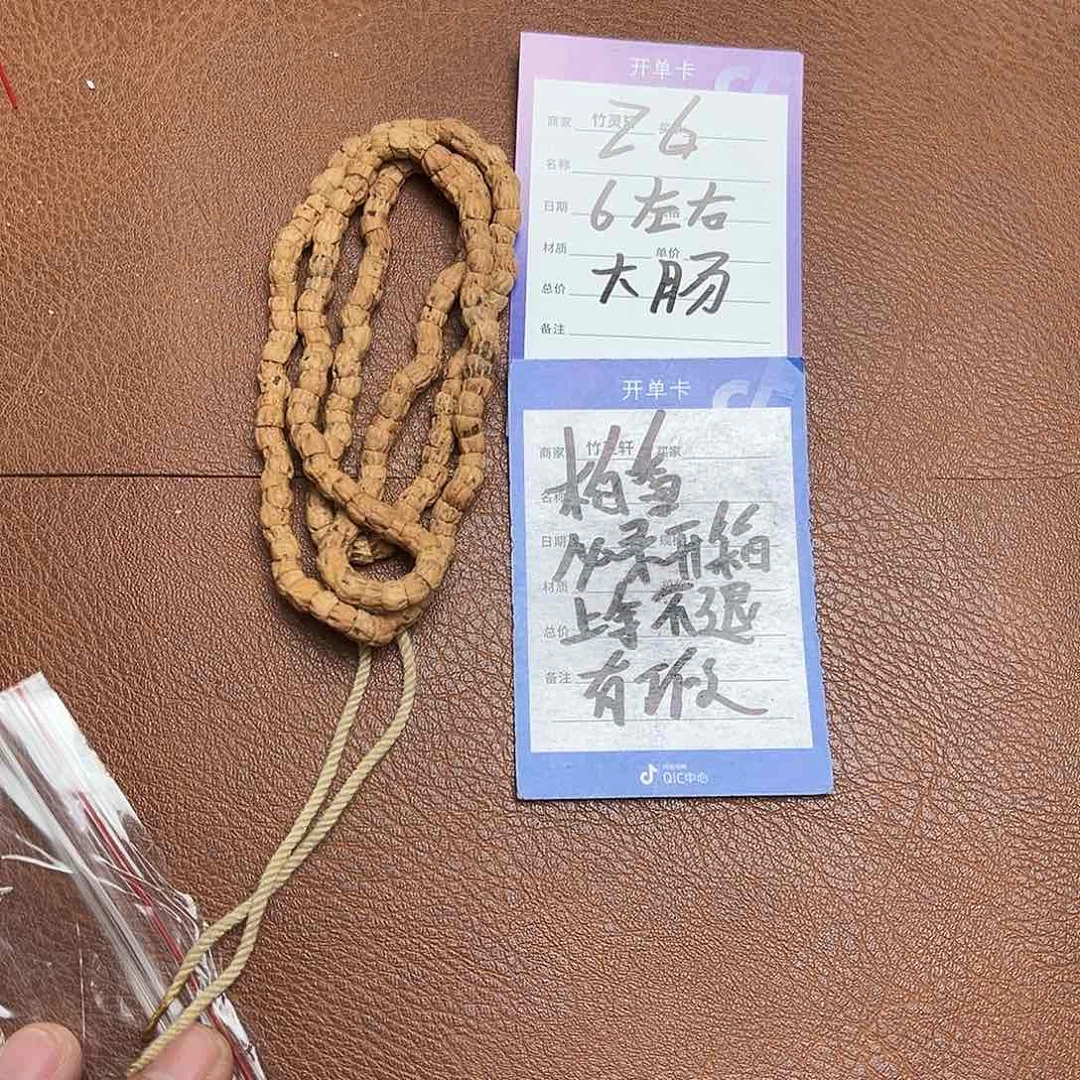 开单卡
商家 竹灵轩
Z6
名称
日期
6左右
材质 单价
大肠
总价
备注
开单卡
商家 竹灵轩 买家
名称
日期 规格
开箱
材质
上手不退
总价
备注
有
QIC中心